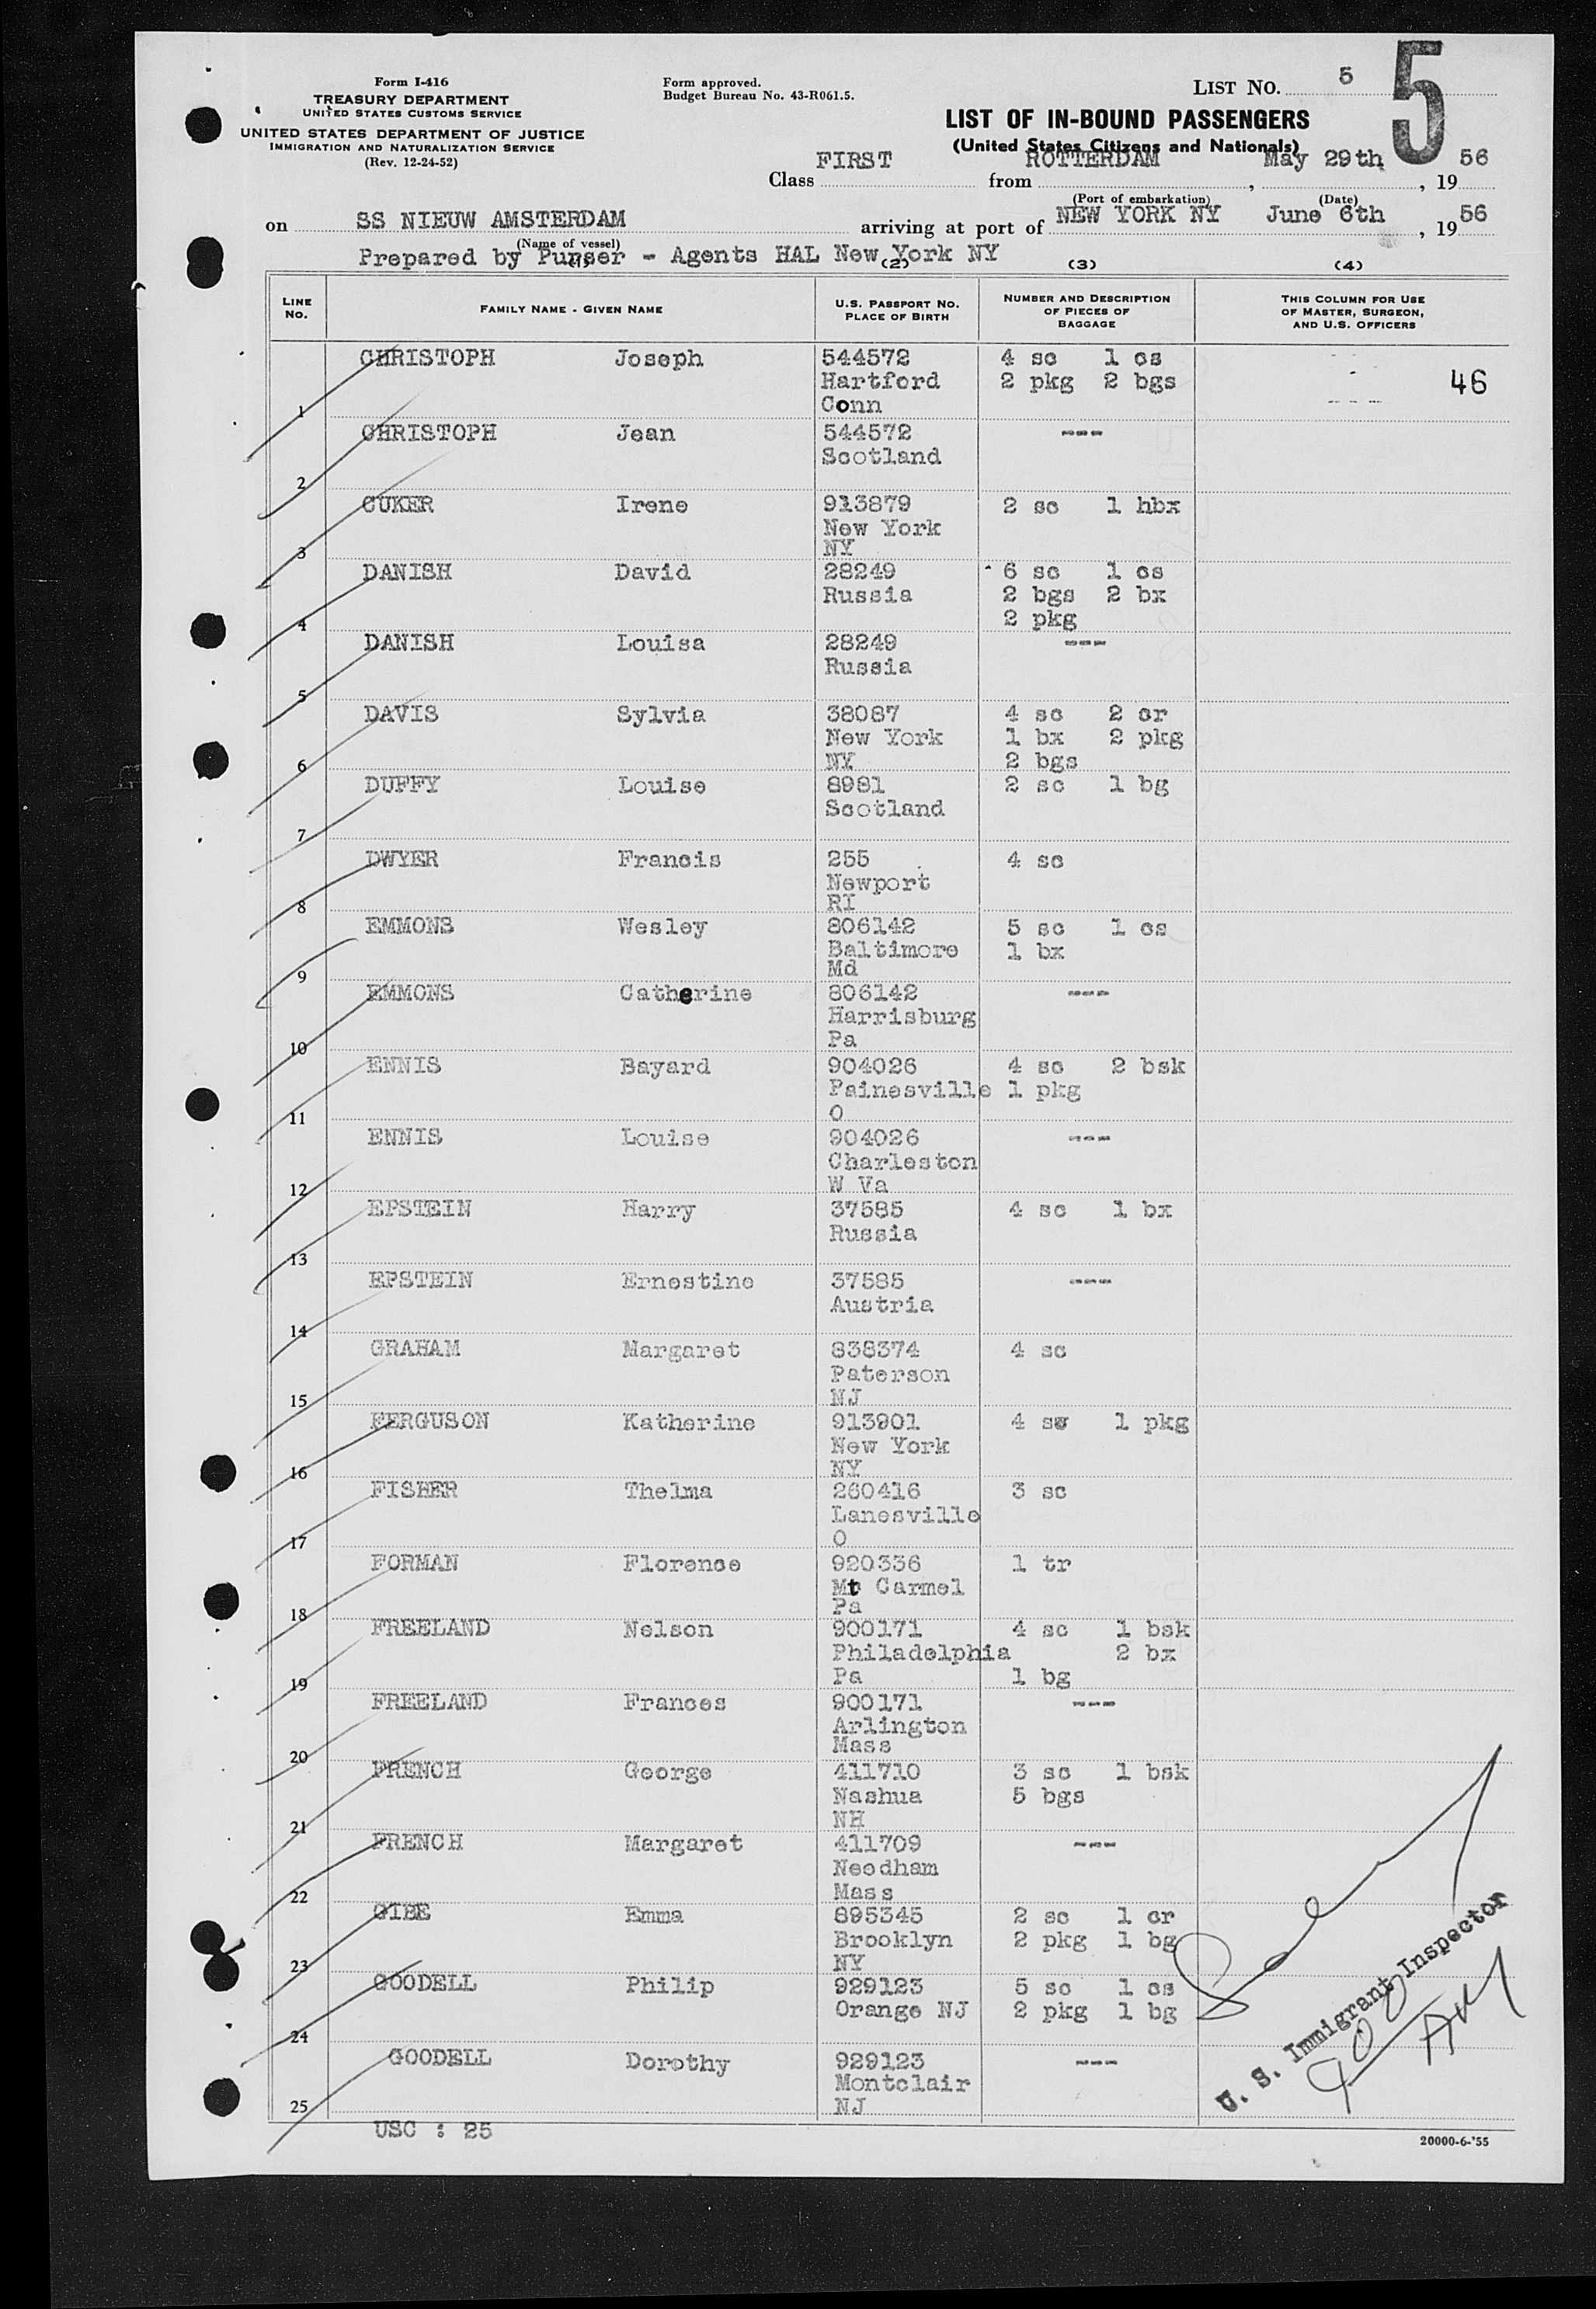 Form I-416
TREASURY DEPARTMENT
UNITED STATES CUSTOMS SERVICE
UNITED STATES DEPARTMENT OF JUSTICE
IMMIGRATION AND NATURALIZATION SERVICE
(Rev. 12-24-52)
Form approved.
Budget Bureau No. 43-R061.5.
LIST NO. 5
5
LIST OF IN-BOUND PASSENGERS
(United States Citizens and Nationals)
Class FIRST from ROTTERDAM, May 29th, 1956
(Port of embarkation) (Date)
on SS NIEUW AMSTERDAM arriving at port of NEW YORK NY June 6th, 1956
(Name of vessel)
Prepared by Purser - Agents HAL New York NY
(1) (2) (3) (4)
LINE NO. FAMILY NAME - GIVEN NAME U.S. PASSPORT NO. PLACE OF BIRTH NUMBER AND DESCRIPTION OF PIECES OF BAGGAGE THIS COLUMN FOR USE OF MASTER, SURGEON, AND U.S. OFFICERS
CHRISTOPH Joseph 544572 4 sc 1 cs
Hartford 2 pkg 2 bgs 46
1 Conn
CHRISTOPH Jean 544572 ---
Scotland
2
CUKER Irene 913879 2 sc 1 hbx
New York
3 NY
DANISH David 28249 6 sc 1 cs
Russia 2 bgs 2 bx
4 2 pkg
DANISH Louisa 28249 ---
Russia
5
DAVIS Sylvia 38087 4 sc 2 cr
New York 1 bx 2 pkg
6 NY 2 bgs
DUFFY Louise 8981 2 sc 1 bg
Scotland
7
DWYER Francis 255 4 sc
Newport
8 RI
EMMONS Wesley 806142 5 sc 1 cs
Baltimore 1 bx
9 Md
EMMONS Catherine 806142 ---
Harrisburg
10 Pa
ENNIS Bayard 904026 4 sc 2 bsk
Painesville 1 pkg
11 O
ENNIS Louise 904026 ---
Charleston
12 W Va
EPSTEIN Harry 37585 4 sc 1 bx
Russia
13
EPSTEIN Ernestine 37585 ---
Austria
14
GRAHAM Margaret 838374 4 sc
Paterson
15 NJ
FERGUSON Katherine 913901 4 sc 1 pkg
New York
16 NY
FISHER Thelma 260416 3 sc
Lanesville
17 O
FORMAN Florence 920336 1 tr
Mt Carmel
18 Pa
FREELAND Nelson 900171 4 sc 1 bsk
Philadelphia 2 bx
19 Pa 1 bg
FREELAND Frances 900171 ---
Arlington
20 Mass
FRENCH George 411710 3 sc 1 bsk
Nashua 5 bgs
21 NH
FRENCH Margaret 411709 ---
Needham
22 Mass
GIBE Emma 895345 2 sc 1 cr
Brooklyn 2 pkg 1 bg
23 NY
GOODELL Philip 929123 5 sc 1 cs
Orange NJ 2 pkg 1 bg
24
GOODELL Dorothy 929123 ---
Montclair
25 NJ
U. S. Immigrant Inspector
USC : 25
20000-6-'55